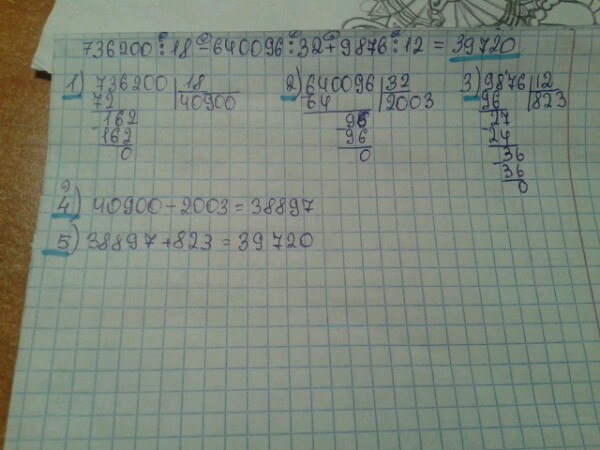 736200:18-640096:32+9876:12=39720
1) 736200 | 18 2) 640096 | 32 3) 9876 | 12
72 40900 64 2003 96 823
162 96 27
162 96 24
0 0 36
36
0
4) 40900-2003=38897
5) 38897+823=39720